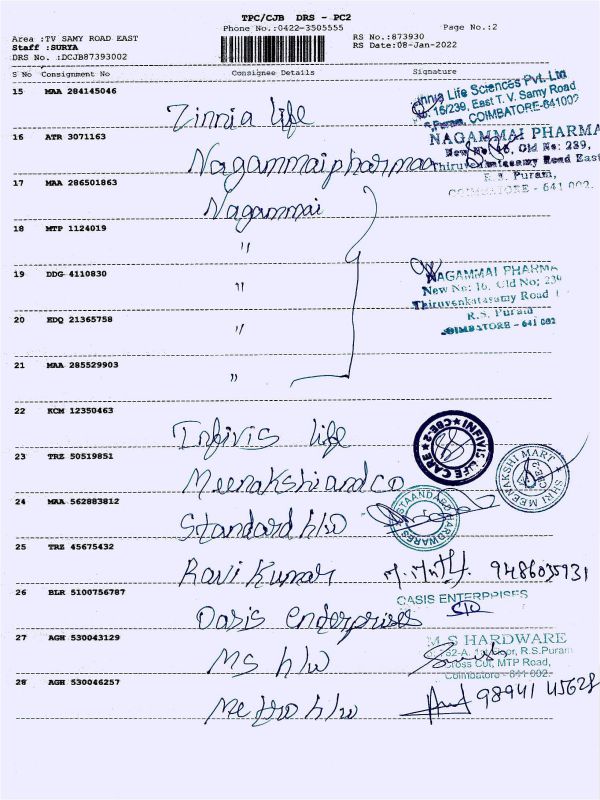 TPC/CJB DRS - PC2
Phone No.:0422-3505555 Page No.:2
Area :TV SAMY ROAD EAST RS No.:873930
Staff :SURYA RS Date:08-Jan-2022
DRS No. :DCJB87393002
S No Consignment No Consignee Details Signature
15 MAA 284145046
Zinnia life
Zinnia Life Sciences Pvt. Ltd
16/239, East T. V. Samy Road
Puram, COIMBATORE-641002
16 ATR 3071163
Nagammaipharmaa
NAGAMMAI PHARMA
New No: 16, Old No: 239,
Thiruvenkatasamy Road East
R.S. Puram,
COIMBATORE - 641 002.
17 MAA 286501863
Nagammai
18 MTP 1124019
"
19 DDG 4110830
"
NAGAMMAI PHARMA
New No: 16, Old No: 239
Thiruvenkatasamy Road
R.S. Puram
COIMBATORE - 641 002
20 EDQ 21365758
"
21 MAA 285529903
"
22 KCM 12350463
Infivis life
INFIVIS LIFE CARE CBE-2
23 TRZ 50519851
Meenakshi and co
SHRI MEENAKSHI MART CBE-2
24 MAA 562883812
Standard h/w
STAANDARD HARDWARES
25 TRZ 45675432
Ravi Kumar
9486035931
26 BLR 5100756787
Oasis enterprises
OASIS ENTERPRISES
27 AGH 530043129
Ms h/w
M.S HARDWARE
52-A, 1st Floor, R.S.Puram
Cross Cut, MTP Road,
Coimbatore - 641 002.
28 AGH 530046257
Metro h/w
98941 45628